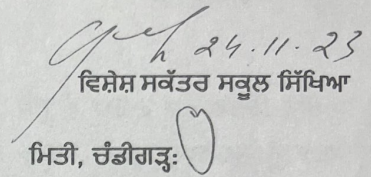 24.11.23
ਵਿਸ਼ੇਸ਼ ਸਕੱਤਰ ਸਕੂਲ ਸਿੱਖਿਆ
ਮਿਤੀ, ਚੰਡੀਗੜ੍ਹ: